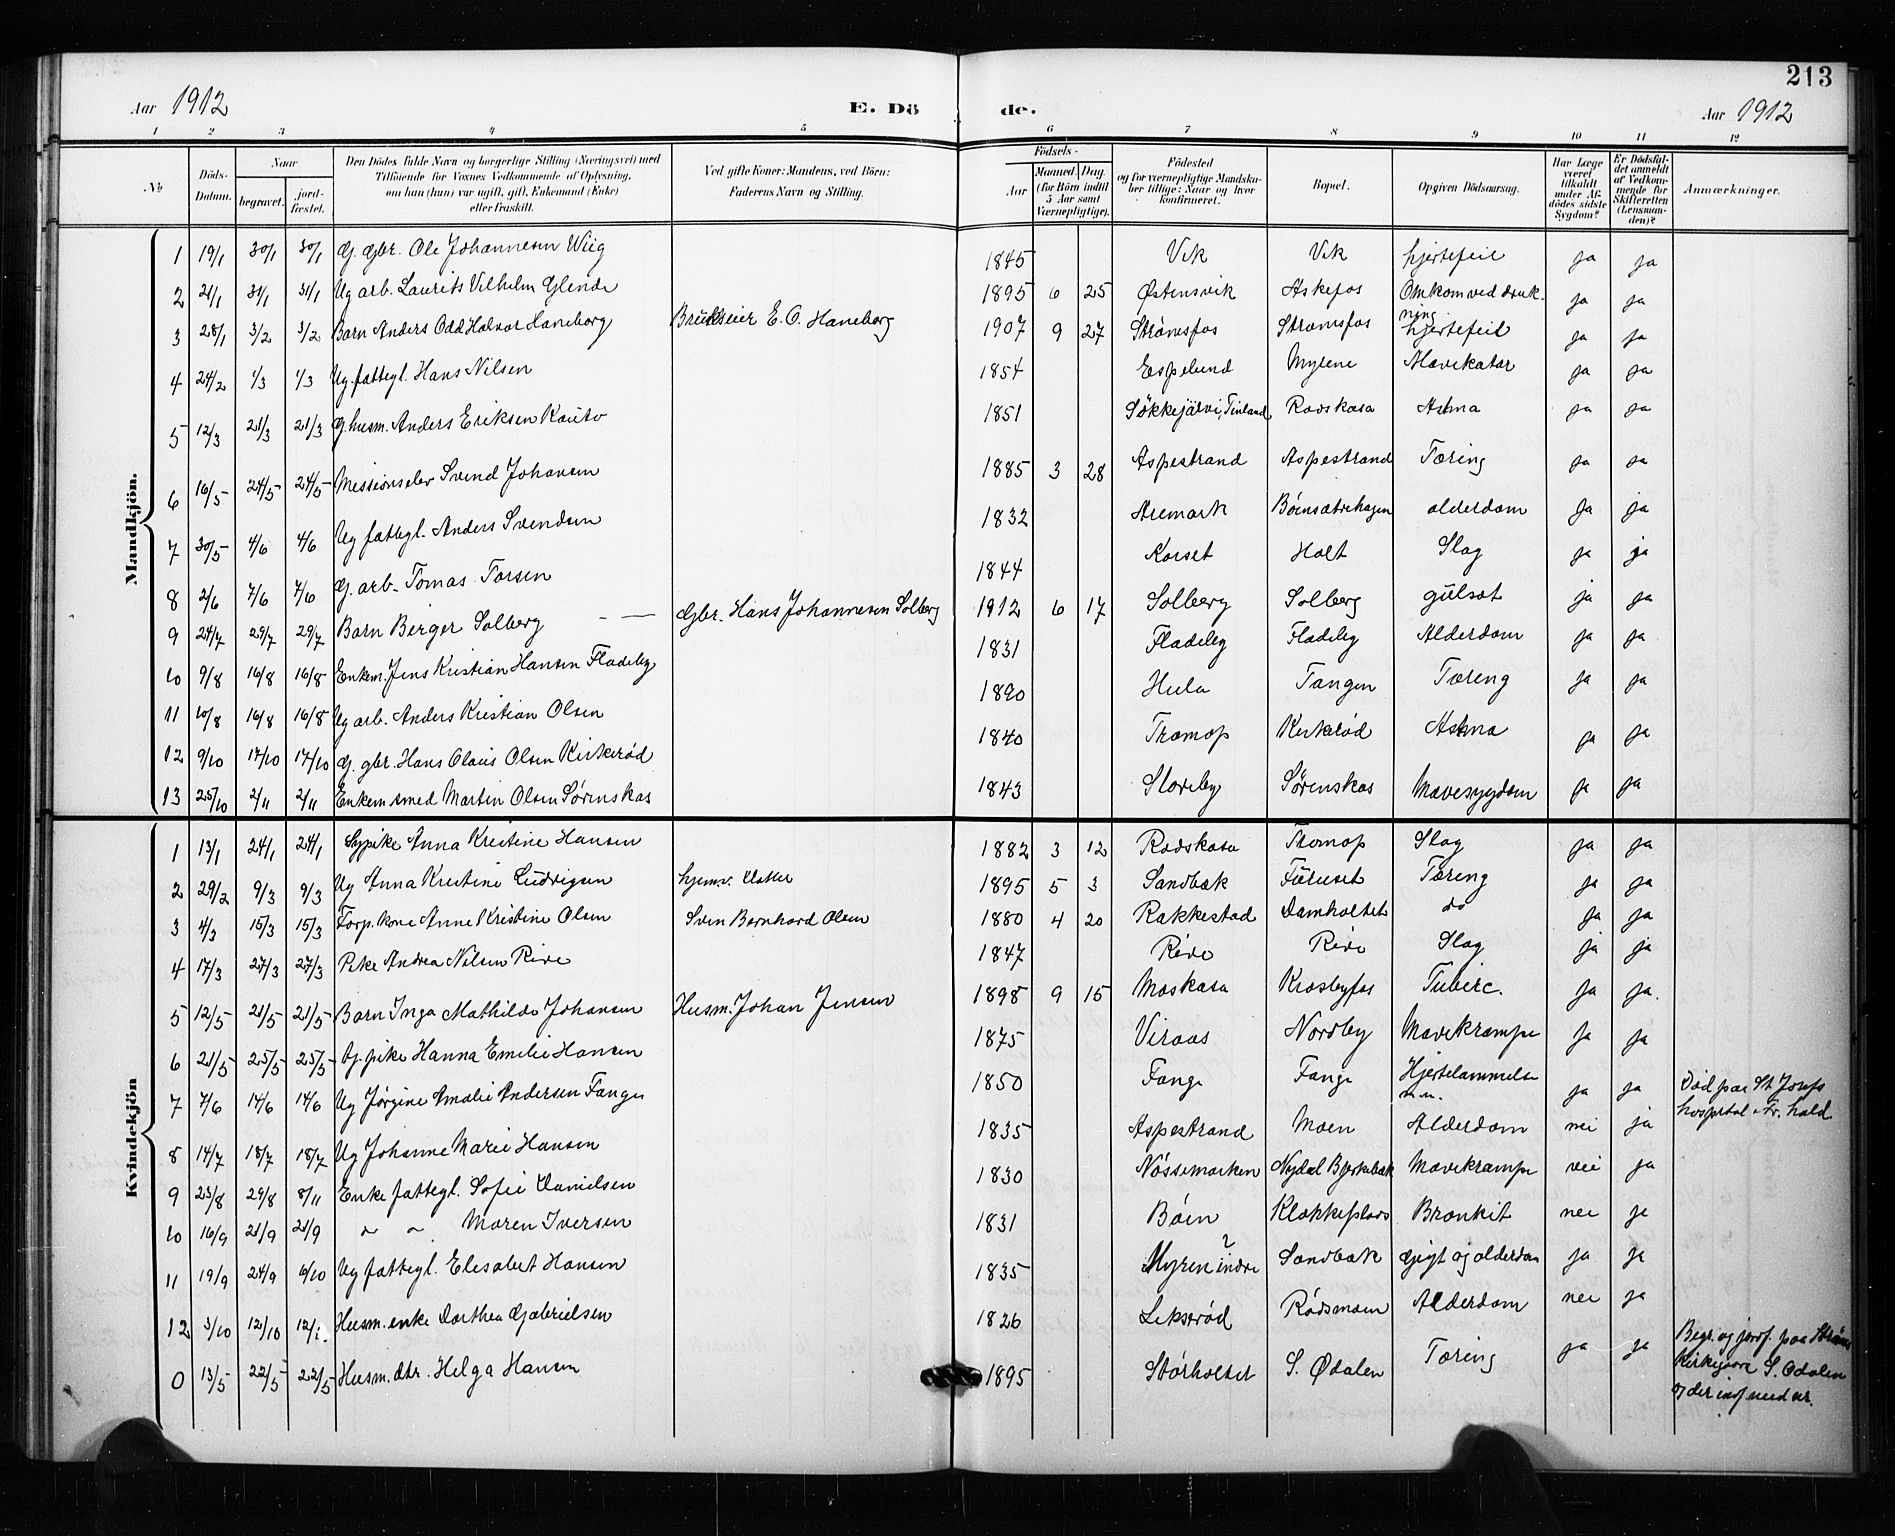 213
Aar 1912 E. Dö de. Aar 1912
1 2 3 4 5 6 7 8 9 10 11 12
No Döds-Datum. Naar begravet. jordfæstet. Den Dödes fulde Navn og borgerlige Stilling (Næringsvei) med Tilföiende for Voxnes Vedkommende af Oplysning, om han (hun) var ugift, gift, Enkemand (Enke) eller fraskilt. Ved gifte Koner: Mandens, ved Börn: Faderens Navn og Stilling. Födsels- Aar Maaned. Dag. (for Börn indtil 5 Aar samt Værnepligtige). Födested og for værnepligtige Mandskaber tillige: Naar og hvor konfirmeret. Bopæl. Opgiven Dödsaarsag. Har Læge været tilkaldt under Afdödes sidste Sygdom? Er Dödsfaldet anmeldt af Vedkommende for Skifteretten (Lensmanden)? Anmærkninger.
Mandkjön.
1 19/1 30/1 30/1 G. gbr. Ole Johannesen Wiig 1845 Vik Vik hjertefeil ja ja
2 21/1 31/1 31/1 Ug arb. Laurits Vilhelm Glende 1895 6 25 Østensvik Askefos Omkom ved drukning ja ja
3 28/1 3/2 3/2 Barn Anders Odd Halvor Haneborg Brukseier E. O. Haneborg 1907 9 27 Strømsfos Strømsfos hjertefeil ja ja
4 24/2 1/3 1/3 Ug. fattegl. Hans Nilsen 1854 Espelund Myrene Mavekatar ja ja
5 12/3 21/3 21/3 G. husm. Anders Eriksen Kauto 1851 Søkkejärvi, Finland Radskasa Astma ja ja
6 16/5 24/5 24/5 Missionselev Svend Johansen 1885 3 28 Aspestrand Aspestrand Tæring ja ja
7 30/5 4/6 4/6 Ug fattegl. Anders Svendsen 1832 Aremark Bøensætrehagen alderdom ja ja
8 2/6 7/6 7/6 G. arb. Tomas Torsen 1844 Korset Holt Slag ja ja
9 24/7 29/7 29/7 Barn Birger Solberg Gbr. Hans Johannesen Solberg 1912 6 17 Solberg Solberg gulsot ja ja
10 9/8 16/8 16/8 Enkem. Jens Kristian Hansen Fladeby 1831 Fladeby Fladeby Alderdom ja ja
11 10/8 16/8 16/8 Ug arb. Anders Kristian Olsen 1890 Hula Tangen Tæring ja ja
12 9/10 17/10 17/10 G. gbr. Hans Olaus Olsen Kirkerød 1840 Tramop Kirkerød Astma ja ja
13 25/10 2/11 2/11 Enkem smed Martin Olsen Sørenskas 1843 Storeby Sørenskas Mavesygdom ja ja
Kvindekjön
1 13/1 24/1 24/1 Sypike Anna Kristine Hansen 1882 3 12 Radskasa Tromop Slag ja ja
2 29/2 9/3 9/3 Ug Anna Kristine Ludvigsen hjemv. datter 1895 5 3 Sandbæk Furuset Tæring ja ja
3 4/3 15/3 15/3 Forp. kone Anne Kristine Olsen Sven Bernhard Olsen 1880 4 20 Rakkestad Damholtet do ja ja
4 17/3 27/3 27/3 Pike Andrea Nilsen Rive 1847 Rive Rive Slag ja ja
5 12/5 21/5 21/5 Barn Inga Mathilde Johansen Husm. Johan Jensen 1898 9 15 Moskasa Krosbyfos Tuberc. ja ja.
6 21/5 25/5 25/5 pike Hanna Emilie Hansen 1875 Viraas Nordby Mavekrampe ja ja
7 7/6 14/6 14/6 Ug Jørgine Amalie Andersen Fange 1850 Fange Fange Hjertelammelse m.m. ja ja Død paa St Josefs hospital Fr. hald
8 14/7 18/7 18/7 Ug Johanne Marie Hansen 1835 Aspestrand Moen Alderdom nei ja
9 23/8 29/8 8/11 Enke fattegl. Sofie Danielsen 1830 Nøssemarken Nydal Bjerkebæk Mavekrampe nei ja
10 16/9 21/9 21/9 " " Maren Iversen 1831 Bøen Klokkeplads Bronkit nei ja
11 19/9 24/9 6/10 Ug fattegl. Elesabet Hansen 1835 Myren indre Sandbæk Gigt og alderdom ja ja
12 3/10 12/10 12/1. Husm. enke Dorthea Gabrielsen 1826 Lekserød Rødsmoen Alderdom nei ja
0 13/5 22/5 22/5 Husm. dtr. Helga Hansen 1895 Storholtet S. Ødalen Tæring ja ja Begr. og jordf. paa Strøms Kirkegaard S. Odalen og der indf med nr.